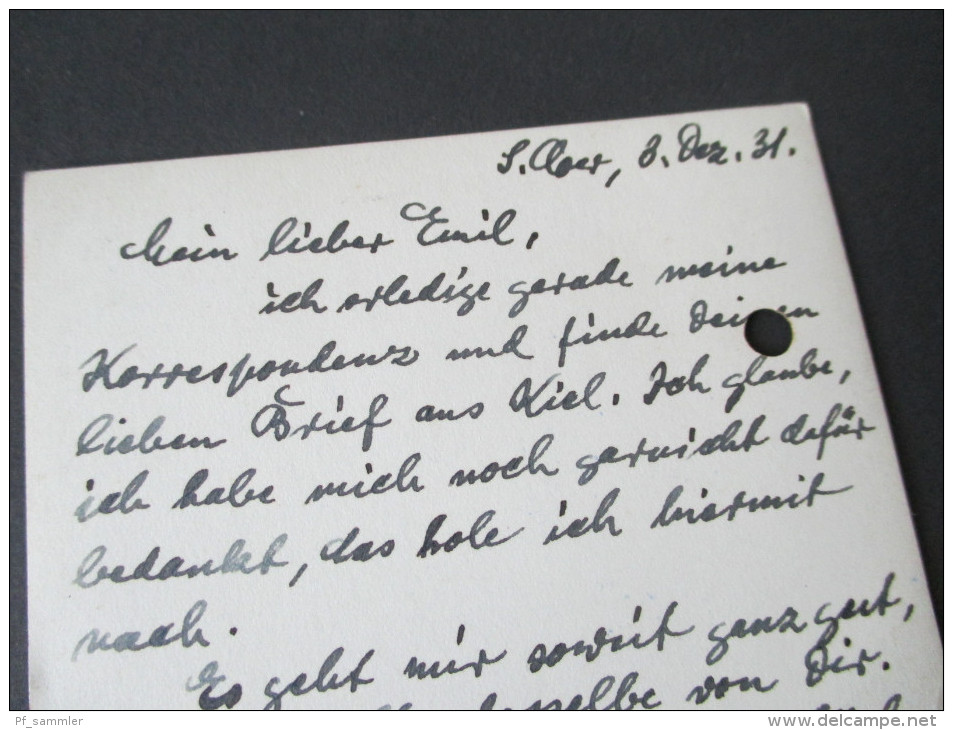 3. Dez. 31.
Mein lieber Emil,
ich erledige gerade meine
Korrespondenz und finde Deinen
lieben Brief aus Kiel. Ich glaube,
ich habe mich noch garnicht dafür
bedankt, das hole ich hiermit
nach.
Es geht mir soweit ganz gut,
dasselbe von Dir.
Pf_sammler
www.delcampe.net